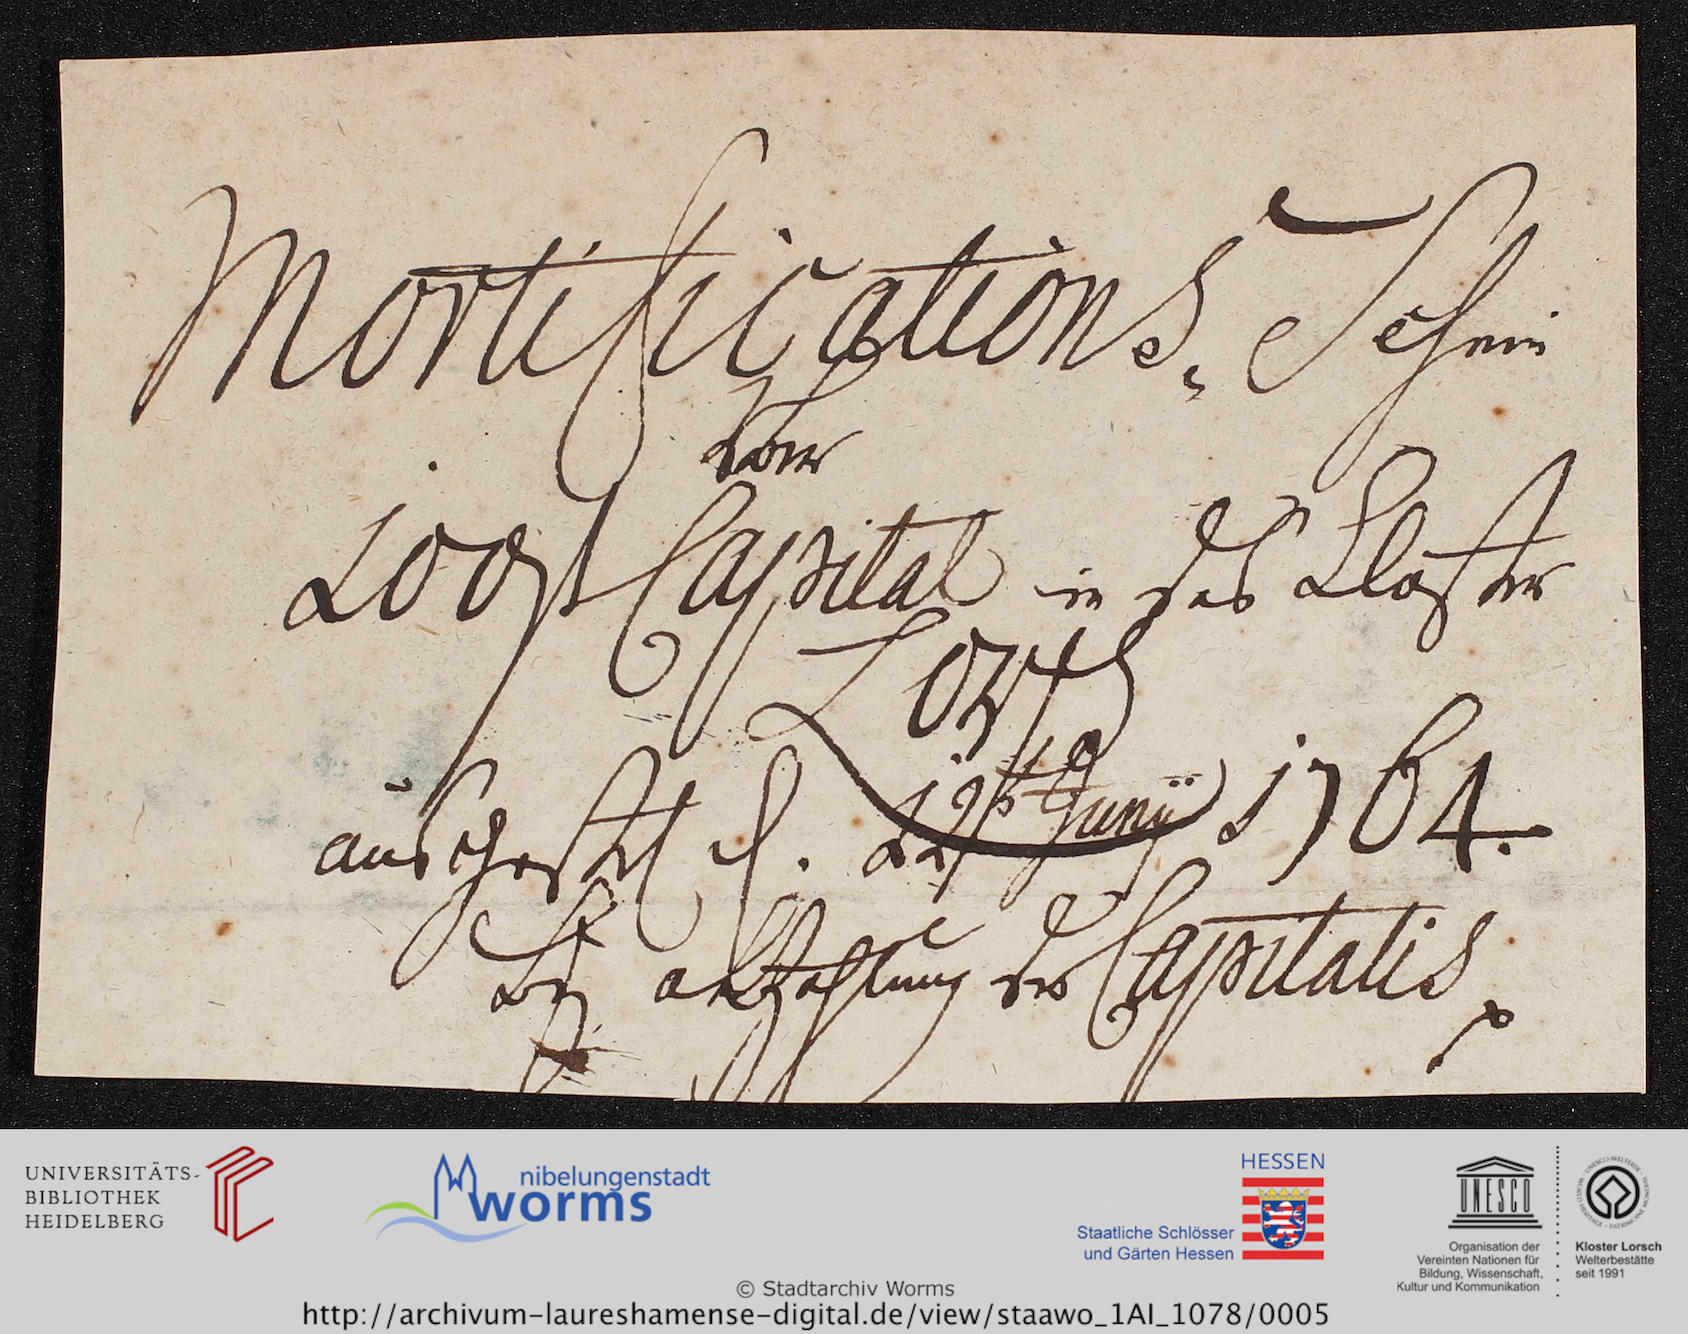 Mortifications, Schein
über
100 fl Capital in das Closter
Lorsch
ausgestelt d. 22ten Junÿ 1764.
Bey abzahlung des Capitals
UNIVERSITÄTS-
BIBLIOTHEK
HEIDELBERG
nibelungenstadt
worms
HESSEN
Staatliche Schlösser
und Gärten Hessen
UNESCO
Organisation der
Vereinten Nationen für
Bildung, Wissenschaft,
Kultur und Kommunikation
Kloster Lorsch
Welterbestätte
seit 1991
© Stadtarchiv Worms
http://archivum-laureshamense-digital.de/view/staawo_1AI_1078/0005